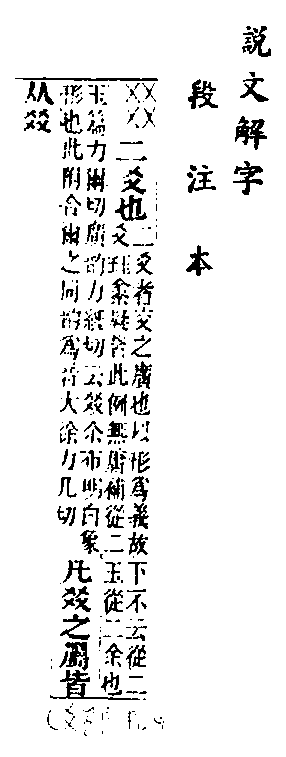 說文解字
段注本
㸚 二爻也 二爻者交之廣也以形爲義故下不云從二
爻玨此例無庸補從二玉從二余也
玉篇力爾切廣韵力紙切云㸚尒布明白象
形也此附合爾之同韵爲音大徐力几切 凡㸚之屬皆
从㸚